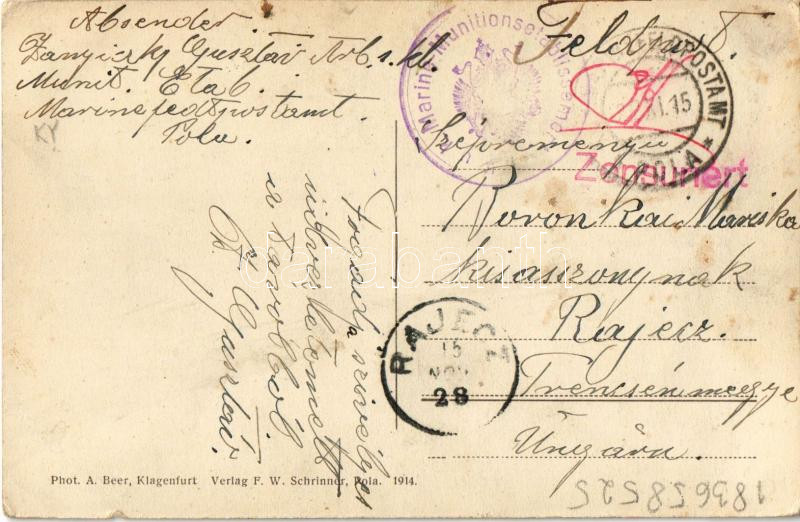 Absender
Zanyiczky Gusztáv Arb. s. kl.
Munit. Etab.
Marinefeldpostamt.
Pola.
K. u. K. Marine-Munitionsetablissement
Feldpost.
FELDPOSTAMT
XI. 15
POLA
Zensuriert
Szépreményü
Boronkai Mariska
kisasszonynak
Rajecz.
Trencsén megye
Ungárn.
RAJECZ
15
NOV
28
Fogadja szivélyes
üdvözletemet
a távolból
Z. Gusztáv.
darabanth
Phot. A. Beer, Klagenfurt Verlag F. W. Schrinner, Pola. 1914.